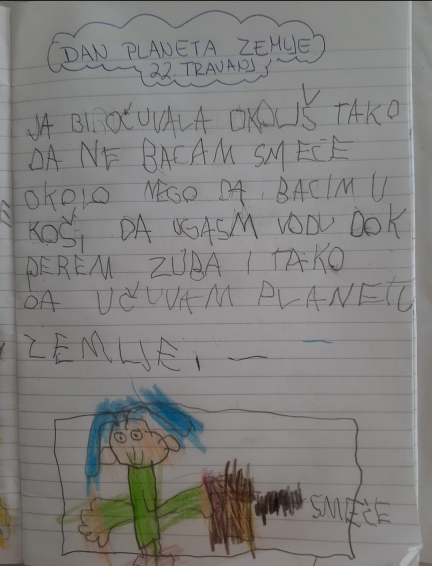 DAN PLANETA ZEMLJE
22. TRAVANJ
JA BI OČUVALA OKOLIŠ TAKO
DA NE BACAM SMEČE
OKOLO NEGO DA BACIM U
KOŠ, DA UGASM VODU DOK
PEREM ZUBA I TAKO
DA UČUVAM PLANETU
ZEMLJE,
SMEČE